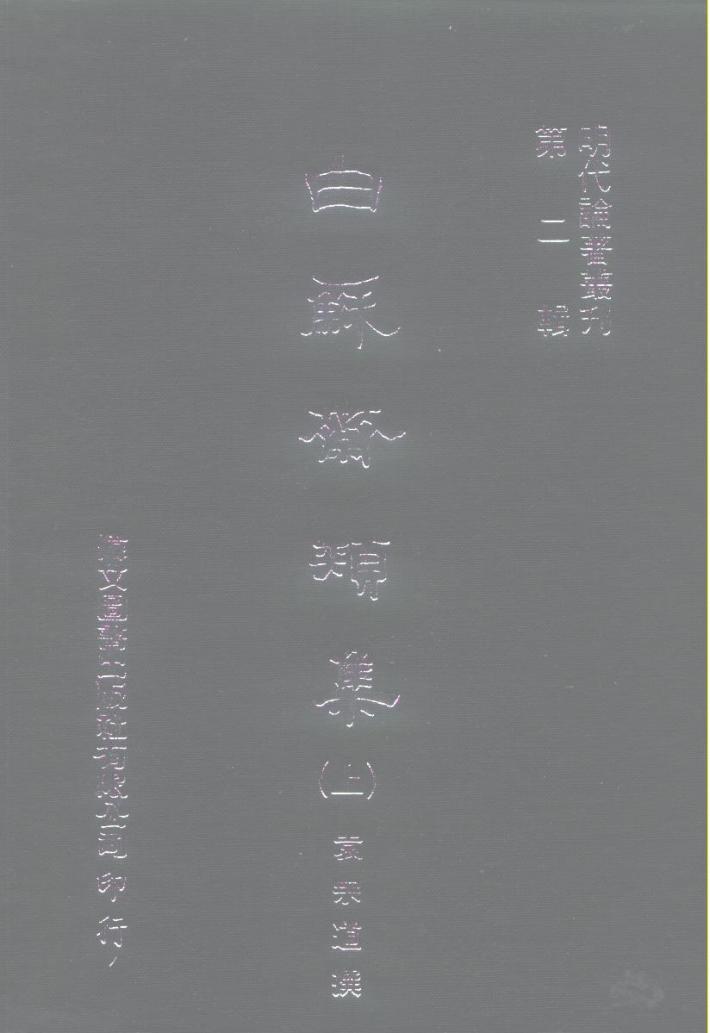 明代論著叢刊
第二輯
白蘇齋類集(上)袁宗道撰
偉文圖書出版社有限公司印行